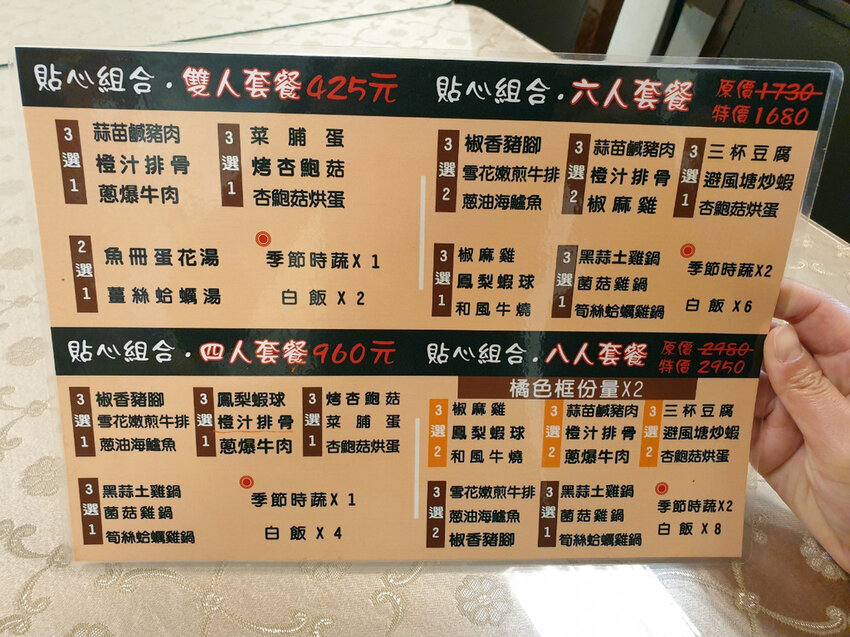 貼心組合·雙人套餐425元
3選1
蒜苗鹹豬肉
橙汁排骨
蔥爆牛肉
3選1
菜脯蛋
烤杏鮑菇
杏鮑菇烘蛋
2選1
魚冊蛋花湯
薑絲蛤蠣湯
季節時蔬X1
白飯X2
貼心組合·六人套餐
原價1730
特價1680
3選2
椒香豬腳
雪花嫩煎牛排
蔥油海鱸魚
3選2
蒜苗鹹豬肉
橙汁排骨
椒麻雞
3選1
三杯豆腐
避風塘炒蝦
杏鮑菇烘蛋
3選1
椒麻雞
鳳梨蝦球
和風牛燒
3選1
黑蒜土雞鍋
菌菇雞鍋
筍絲蛤蠣雞鍋
季節時蔬X2
白飯X6
貼心組合·四人套餐960元
3選1
椒香豬腳
雪花嫩煎牛排
蔥油海鱸魚
3選1
鳳梨蝦球
橙汁排骨
蔥爆牛肉
3選1
烤杏鮑菇
菜脯蛋
杏鮑菇烘蛋
3選1
黑蒜土雞鍋
菌菇雞鍋
筍絲蛤蠣雞鍋
季節時蔬X1
白飯X4
貼心組合·八人套餐
原價2980
特價2950
橘色框份量X2
3選2
椒麻雞
鳳梨蝦球
和風牛燒
3選2
蒜苗鹹豬肉
橙汁排骨
蔥爆牛肉
3選2
三杯豆腐
避風塘炒蝦
杏鮑菇烘蛋
3選2
雪花嫩煎牛排
蔥油海鱸魚
椒香豬腳
3選1
黑蒜土雞鍋
菌菇雞鍋
筍絲蛤蠣雞鍋
季節時蔬X2
白飯X8